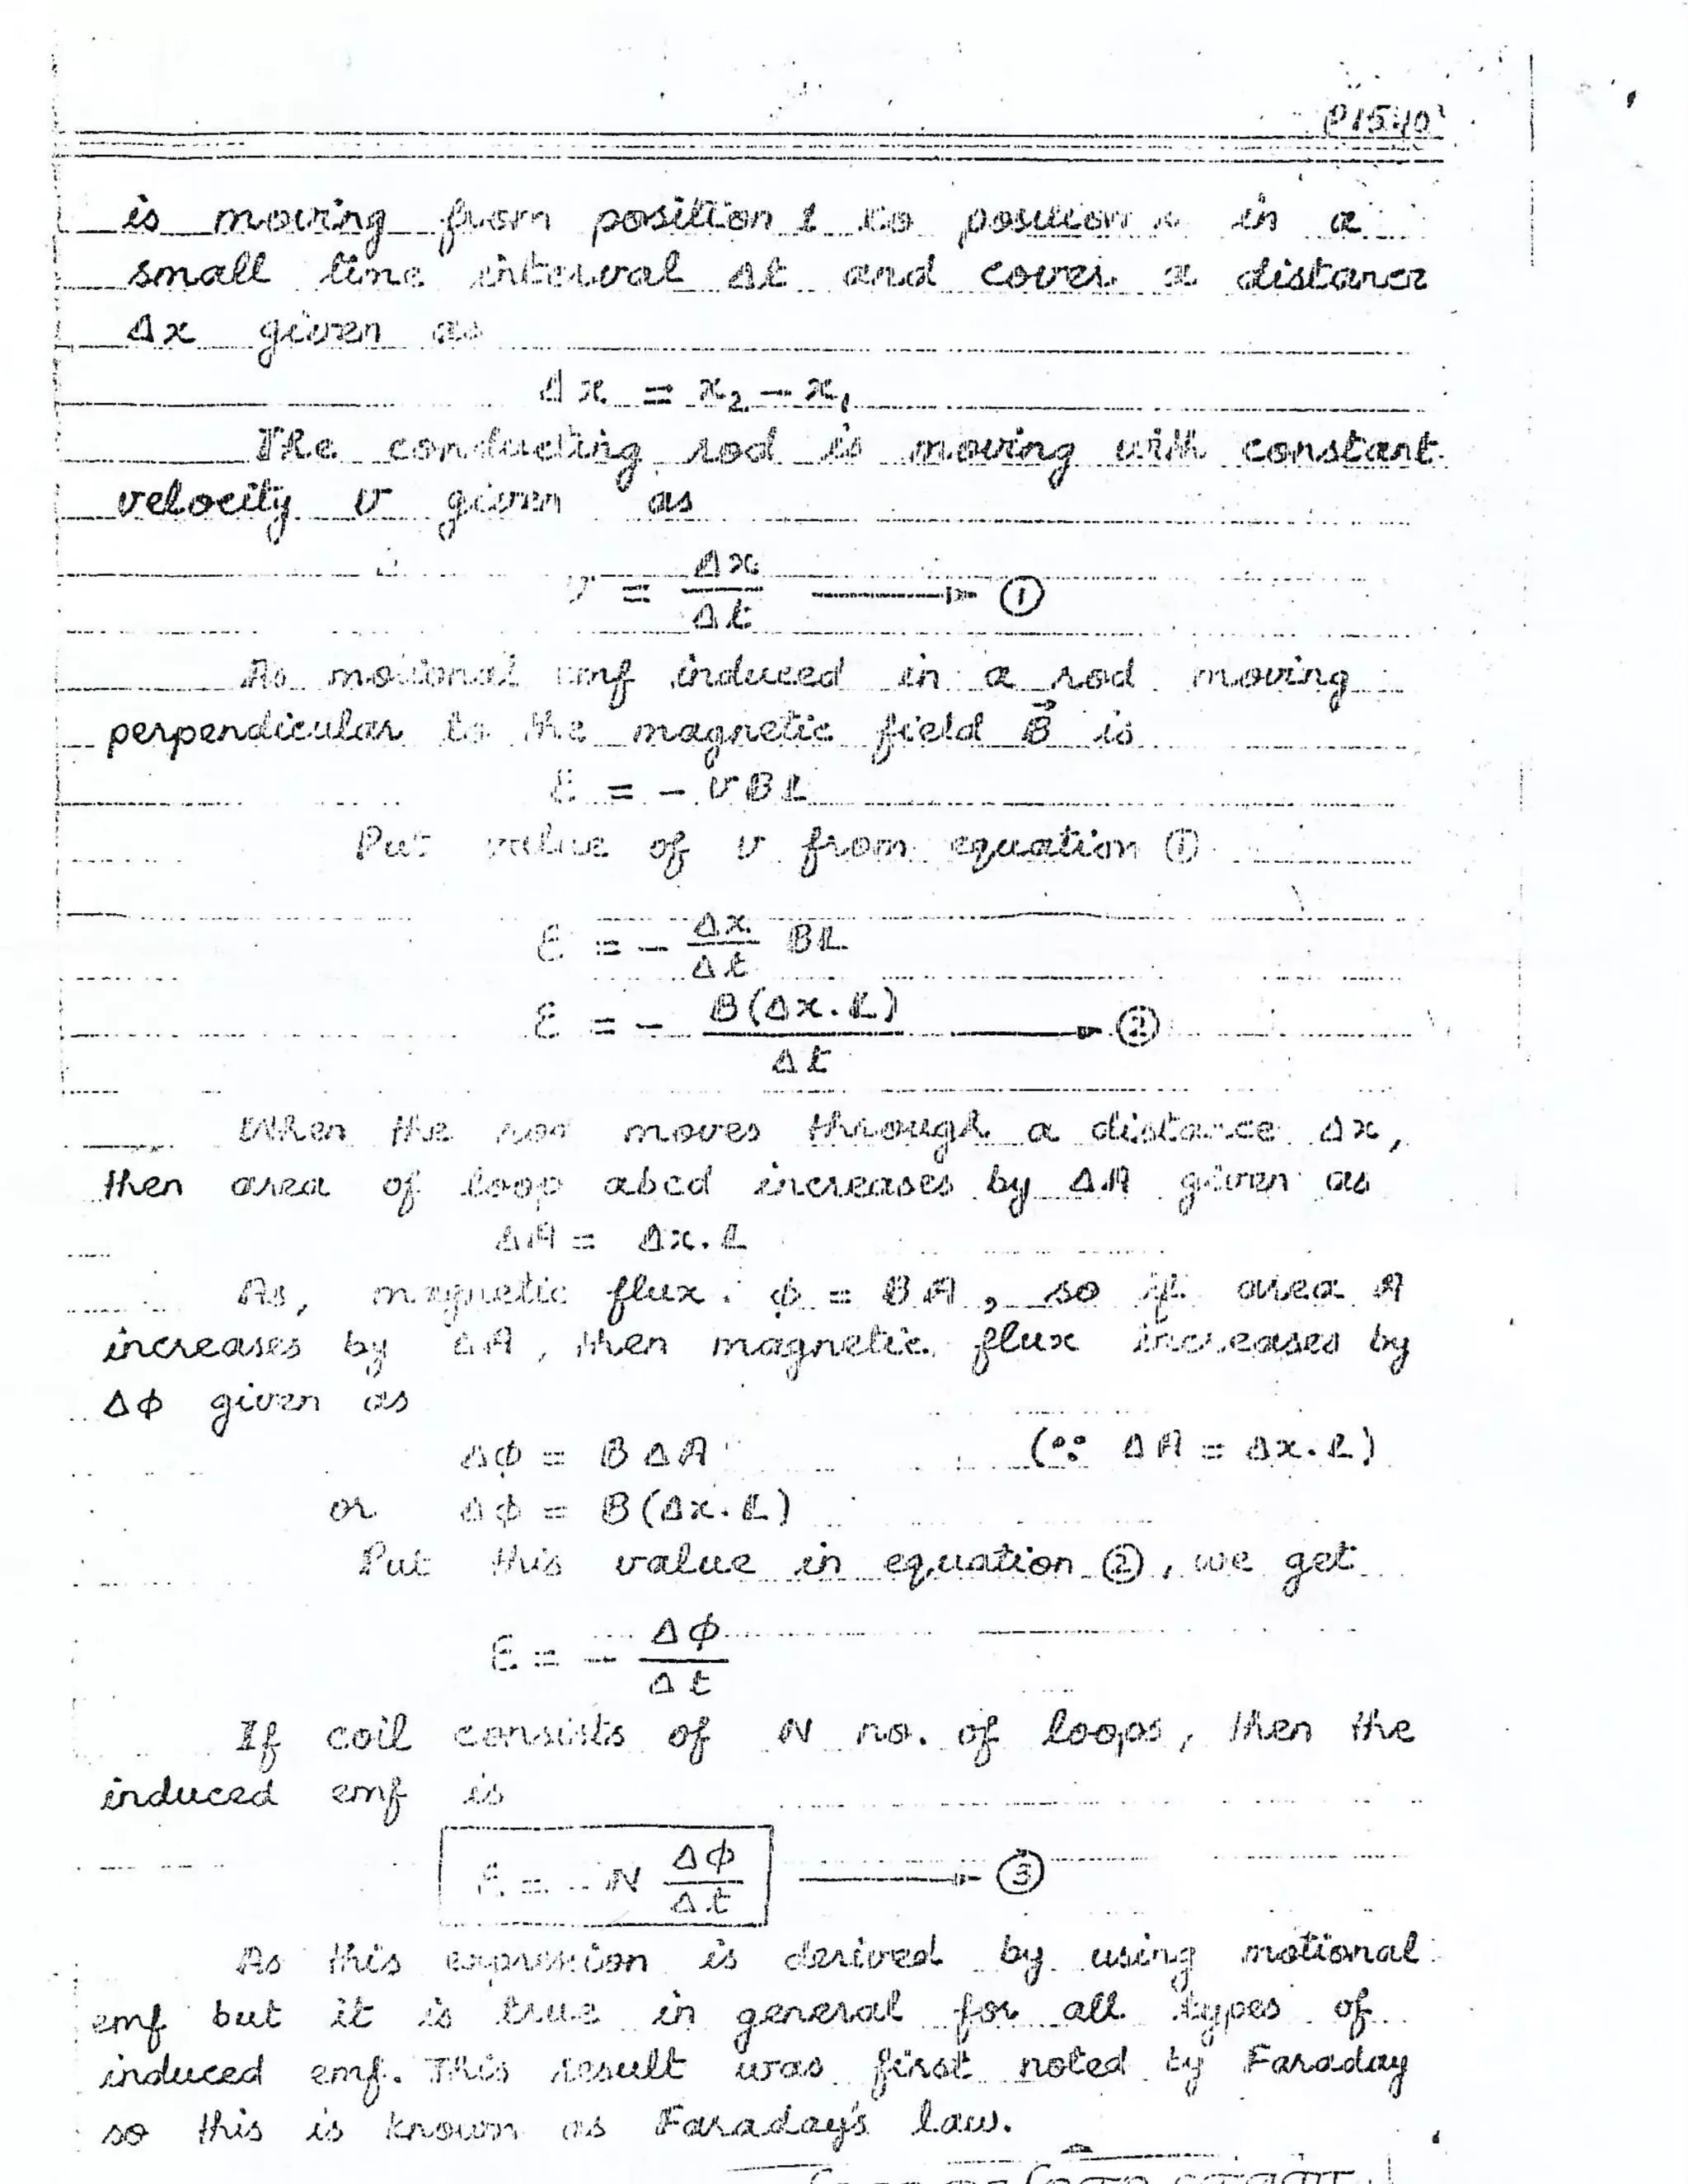 P1540
is moving from position 1 to position in a
small time interval Δt and cover a distance
Δx given as
Δx = x₂ − x₁
The conducting rod is moving with constant
velocity v given as
v = Δx/Δt → ①
As motional emf induced in a rod moving
perpendicular to the magnetic field B⃗ is
Ɛ = − vBL
Put value of v from equation ①
Ɛ = − Δx/Δt BL
Ɛ = − B(Δx.L)/Δt → ②
When the rod moves through a distance Δx,
then area of loop abcd increases by ΔA given as
ΔA = Δx.L
As, magnetic flux. ϕ = BA, so if area A
increases by ΔA, then magnetic flux increases by
Δϕ given as
Δϕ = BΔA (∵ ΔA = Δx.L)
or Δϕ = B(Δx.L)
Put this value in equation ②, we get
Ɛ = − Δϕ/Δt
If coil consists of N no. of loops, then the
induced emf is
Ɛ = − N Δϕ/Δt → ③
As this expression is derived by using motional
emf but it is true in general for all types of
induced emf. This result was first noted by Faraday
so this is known as Faraday's law.